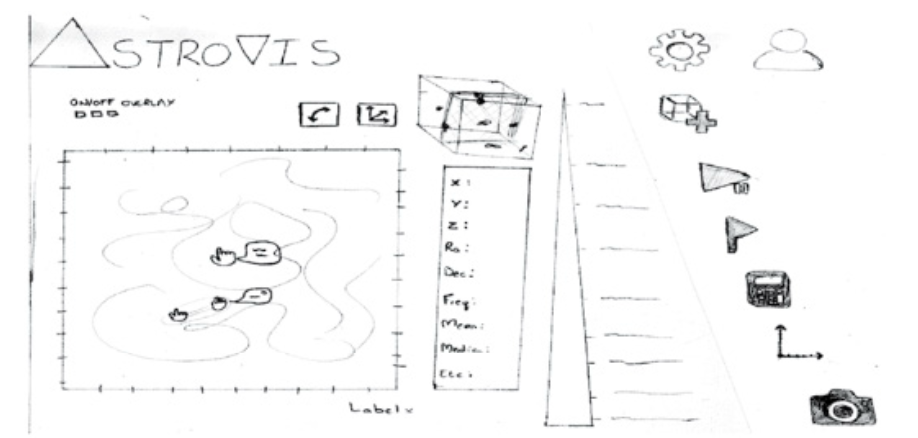 ASTROVIS
ON/OFF OVERLAY
X:
Y:
Z:
Ra:
Dec:
Freq:
Mean:
Median:
Etc:
Label x